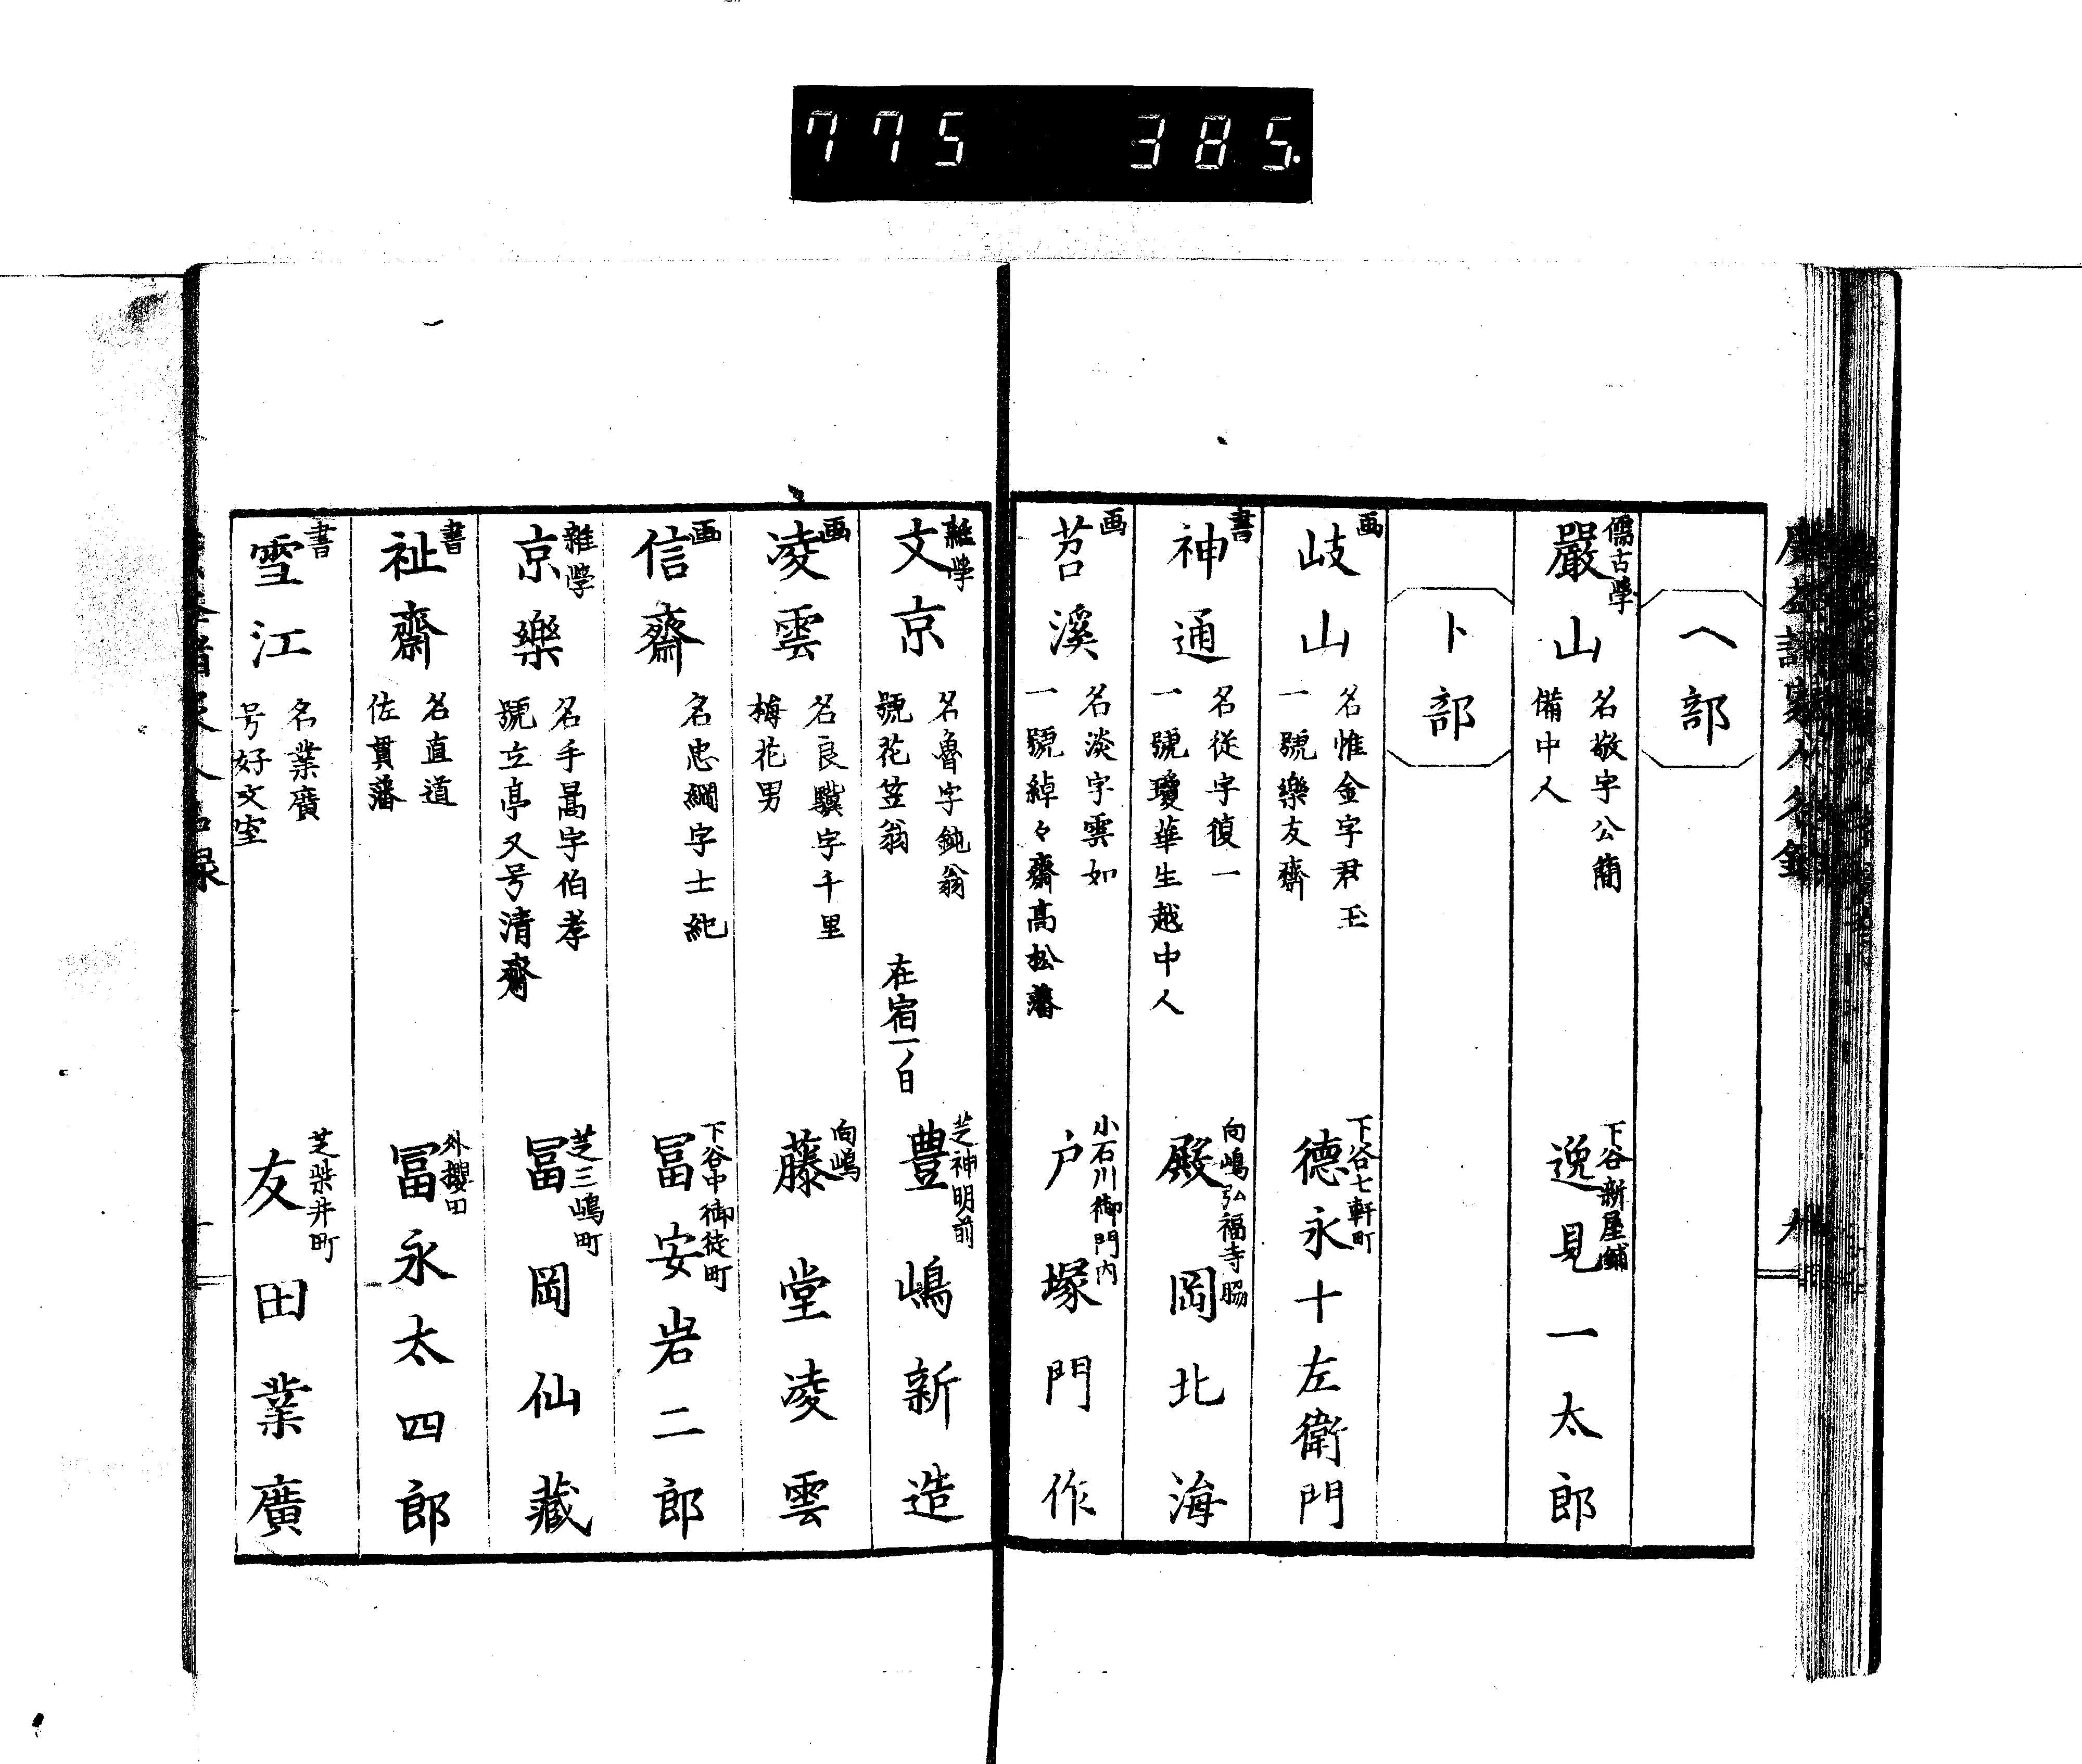 775 385.
ヘ部
儒古學
嚴山
名敬字公簡
備中人
下谷新屋鋪
逸見一太郎
ト部
画
岐山
名惟金字君玉
一號樂友齋
下谷七軒町
德永十左衛門
書
神通
名従字復一
一號瓊華生越中人
向嶋弘福寺脇
殿岡北海
画
苕溪
名淡字雲如
一號綽々齋髙松藩
小石川御門内
戸塚門作
雜學
文京
名魯字鈍翁
號花笠翁
在宿一ノ日
芝神明前
豊嶋新造
画
凌雲
名良驥字千里
梅花男
向嶋
藤堂凌雲
画
信齋
名忠綱字士紀
下谷中御徒町
冨安岩二郎
雜學
京樂
名手暠字伯孝
號立亭又号清齋
芝三嶋町
冨岡仙藏
書
祉齋
名直道
佐貫藩
外櫻田
冨永太四郎
書
雪江
名業廣
号好文室
芝柴井町
友田業廣